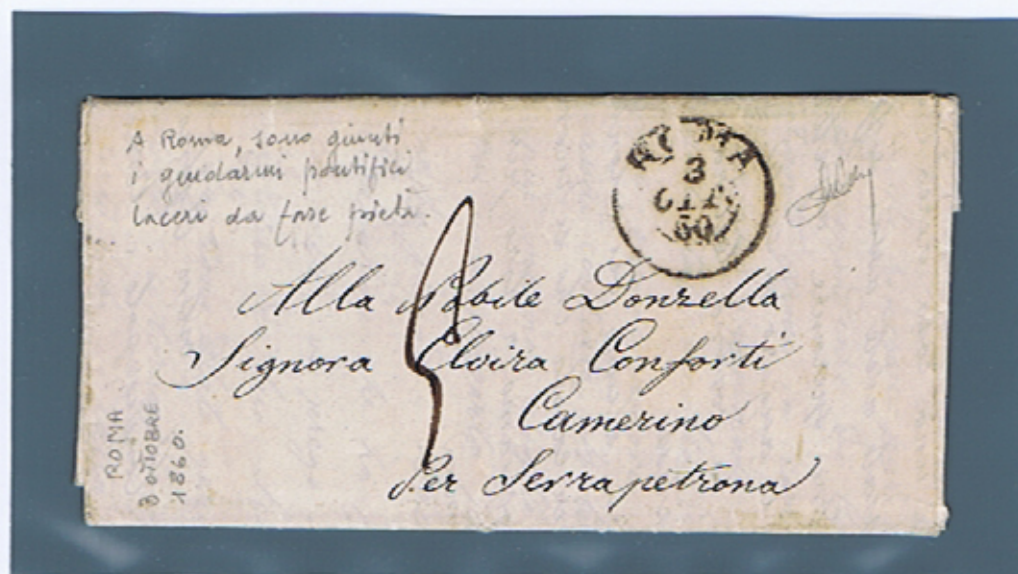 A Roma, sono giunti
i gendarmi pontifici
laceri da fare pietà.
ROMA
3
OTT.
60
Alla Nobile Donzella
Signora Elvira Conforti
Camerino
Per Serrapetrona
ROMA
3 OTTOBRE
1860.